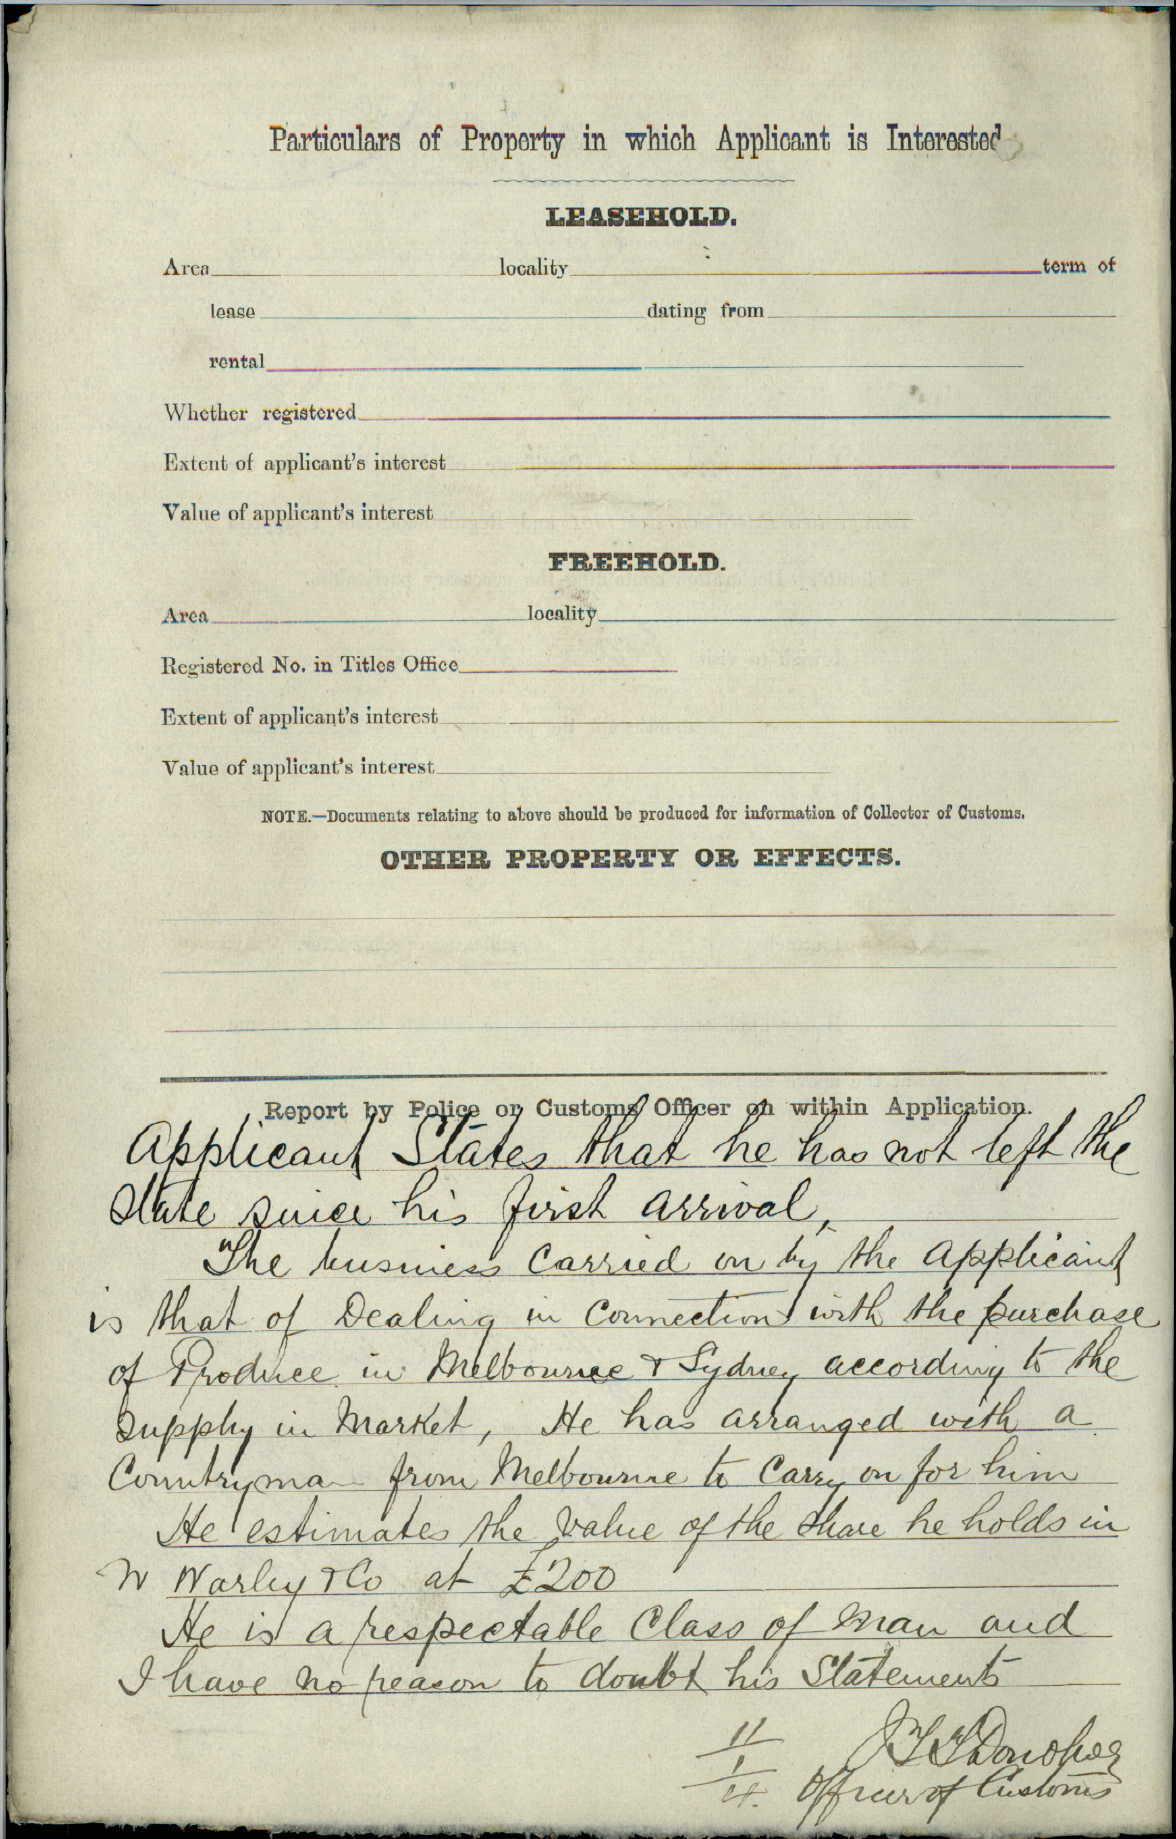 Particulars of Property in which Applicant is Interested
LEASEHOLD.
Area locality term of
lease dating from
rental
Whether registered
Extent of applicant's interest
Value of applicant's interest
FREEHOLD.
Area locality
Registered No. in Titles Office
Extent of applicant's interest
Value of applicant's interest
NOTE.—Documents relating to above should be produced for information of Collector of Customs.
OTHER PROPERTY OR EFFECTS.
Report by Police or Customs Officer on within Application.
Applicant States that he has not left the
State since his first arrival,
The business carried on by the applicant
is that of Dealing in Connection with the purchase
of Produce in Melbourne & Sydney according to the
supply in Market, He has arranged with a
Countryman from Melbourne to Carry on for him
He estimates the value of the share he holds in
W Warley & Co at £200
He is a respectable Class of man and
I have no reason to doubt his Statements
11/1/4. Donohoe
Officer of Customs